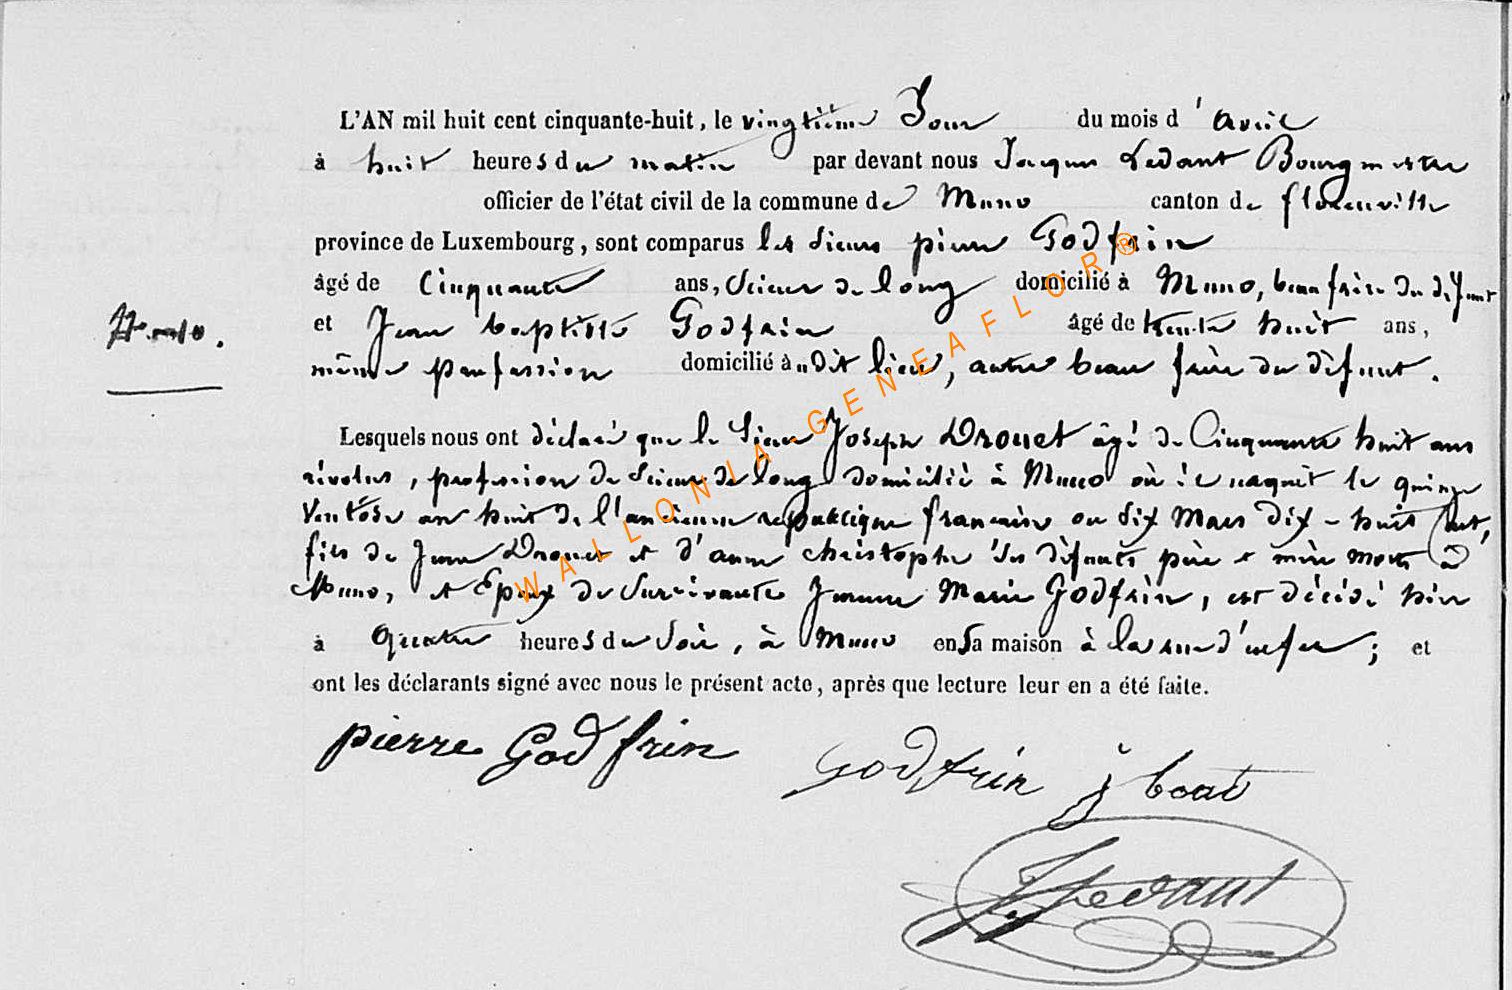 L'AN mil huit cent cinquante-huit, le vingtième Jour du mois d'avril
à huit heures du matin par devant nous Jacques Ledant Bourgmestre
officier de l'état civil de la commune de Muno canton de florenville
province de Luxembourg, sont comparus les Sieurs pierre Godfrin
âgé de Cinquante ans, Scieur de long domicilié à Muno, beau frère du défunt
et Jean baptiste Godfrin âgé de trente huit ans,
même profession domicilié à dit lieu, autre beau frère du défunt.
Lesquels nous ont déclaré que le Sieur Joseph Drouet âgé de Cinquante huit ans
révolus, profession de Scieur de long domicilié à Muno où il naquit le quinze
Ventôse an huit de l'ancienne republique francaise ou Six Mars dix-huit Cent,
fils de Jean Drouet et d'anne christophe Ses défunts père et mère morts à
Muno, et Epoux de Survivante Jeanne Marie Godfrin, est décédé hier
à Quatre heures du Soir, à Muno en Sa maison à la rue d'enfer; et
ont les déclarants signé avec nous le présent acte, après que lecture leur en a été faite.
pierre Godfrin
Godfrin j bват
JLedant
WALLONIA-GENEAFLOR®